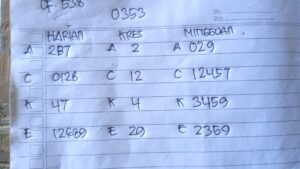 OF. 538
0353
HARIAN KRES MINGGUAN
A 287 A 2 A 029
C 0128 C 12 C 12457
K 47 K 4 K 3459
E 12689 E 29 E 2359